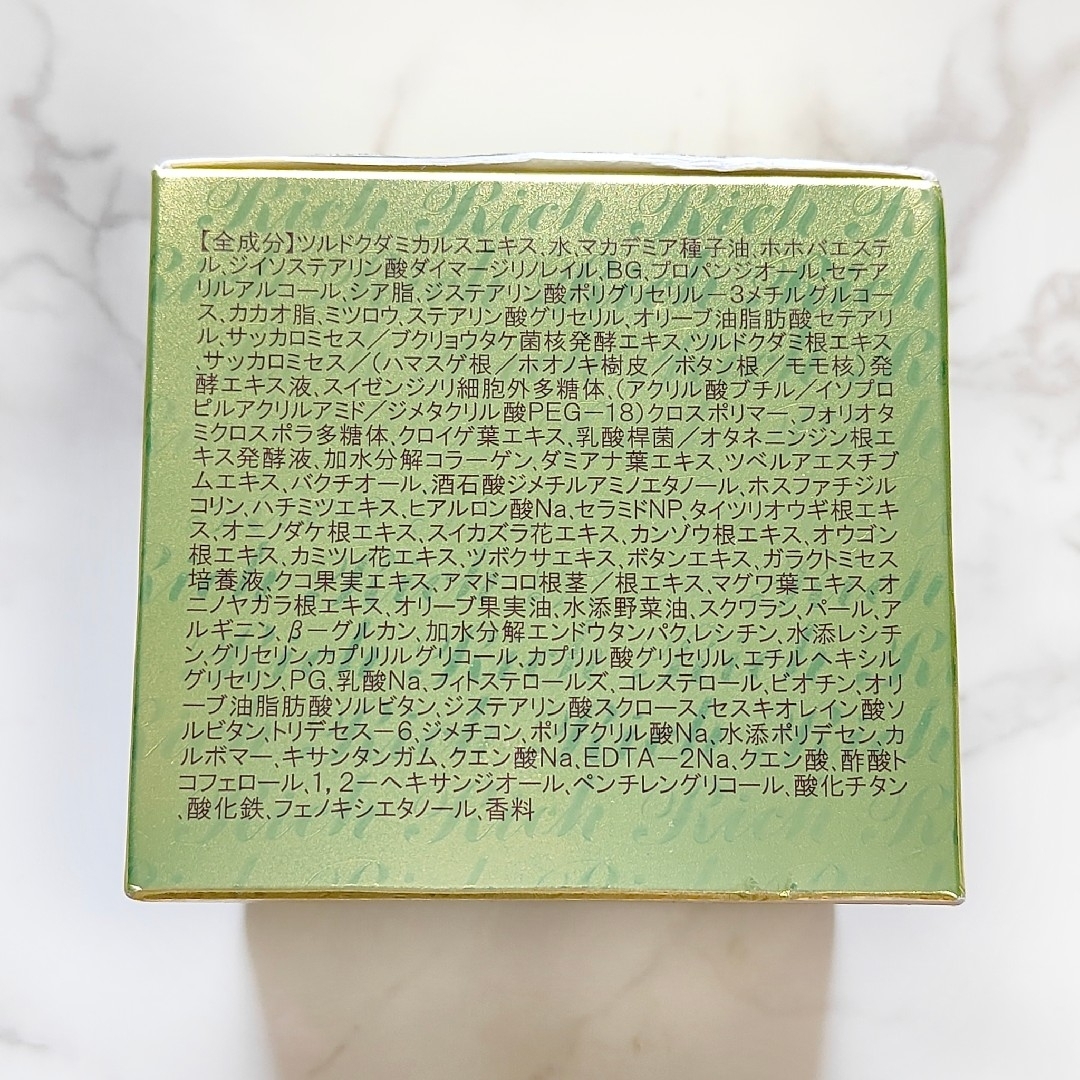 Rich Rich Rich R
【全成分】ツルドクダミカルスエキス、水、マカデミア種子油、ホホバエステ
ル、ジイソステアリン酸ダイマージリノレイル、BG、プロパンジオール、セテア
リルアルコール、シア脂、ジステアリン酸ポリグリセリル－3メチルグルコー
ス、カカオ脂、ミツロウ、ステアリン酸グリセリル、オリーブ油脂肪酸セテアリ
ル、サッカロミセス／ブクリョウタケ菌核発酵エキス、ツルドクダミ根エキス
、サッカロミセス／（ハマスゲ根／ホオノキ樹皮／ボタン根／モモ核）発
酵エキス液、スイゼンジノリ細胞外多糖体、（アクリル酸ブチル／イソプロ
ピルアクリルアミド／ジメタクリル酸PEG－18）クロスポリマー、フォリオタ
ミクロスポラ多糖体、クロイゲ葉エキス、乳酸桿菌／オタネニンジン根エ
キス発酵液、加水分解コラーゲン、ダミアナ葉エキス、ツベルアエスチブ
ムエキス、バクチオール、酒石酸ジメチルアミノエタノール、ホスファチジル
コリン、ハチミツエキス、ヒアルロン酸Na、セラミドNP、タイツリオウギ根エキ
ス、オニノダケ根エキス、スイカズラ花エキス、カンゾウ根エキス、オウゴン
根エキス、カミツレ花エキス、ツボクサエキス、ボタンエキス、ガラクトミセス
培養液、クコ果実エキス、アマドコロ根茎／根エキス、マグワ葉エキス、オ
ニノヤガラ根エキス、オリーブ果実油、水添野菜油、スクワラン、パール、ア
ルギニン、β－グルカン、加水分解エンドウタンパク、レシチン、水添レシチ
ン、グリセリン、カプリリルグリコール、カプリル酸グリセリル、エチルヘキシル
グリセリン、PG、乳酸Na、フィトステロールズ、コレステロール、ビオチン、オリ
ーブ油脂肪酸ソルビタン、ジステアリン酸スクロース、セスキオレイン酸ソ
ルビタン、トリデセス－6、ジメチコン、ポリアクリル酸Na、水添ポリデセン、カ
ルボマー、キサンタンガム、クエン酸Na、EDTA－2Na、クエン酸、酢酸ト
コフェロール、1，2－ヘキサンジオール、ペンチレングリコール、酸化チタン
、酸化鉄、フェノキシエタノール、香料